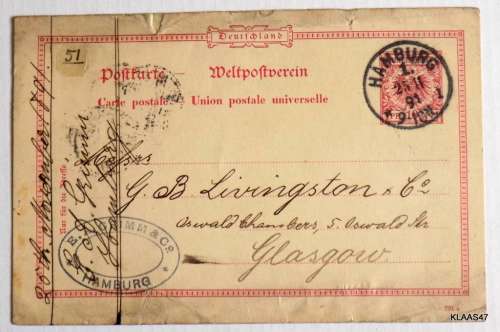 Deutschland
51
Postkarte — Weltpostverein
Carte postale — Union postale universelle
HAMBURG
1.
25.11
91
1
Nur für die Adresse.
Messrs
G. B. Livingston & Co
Oswald Chambers, 5. Oswald Str
Glasgow
25th November 1891
& Co.
HAMBURG
KLAAS47